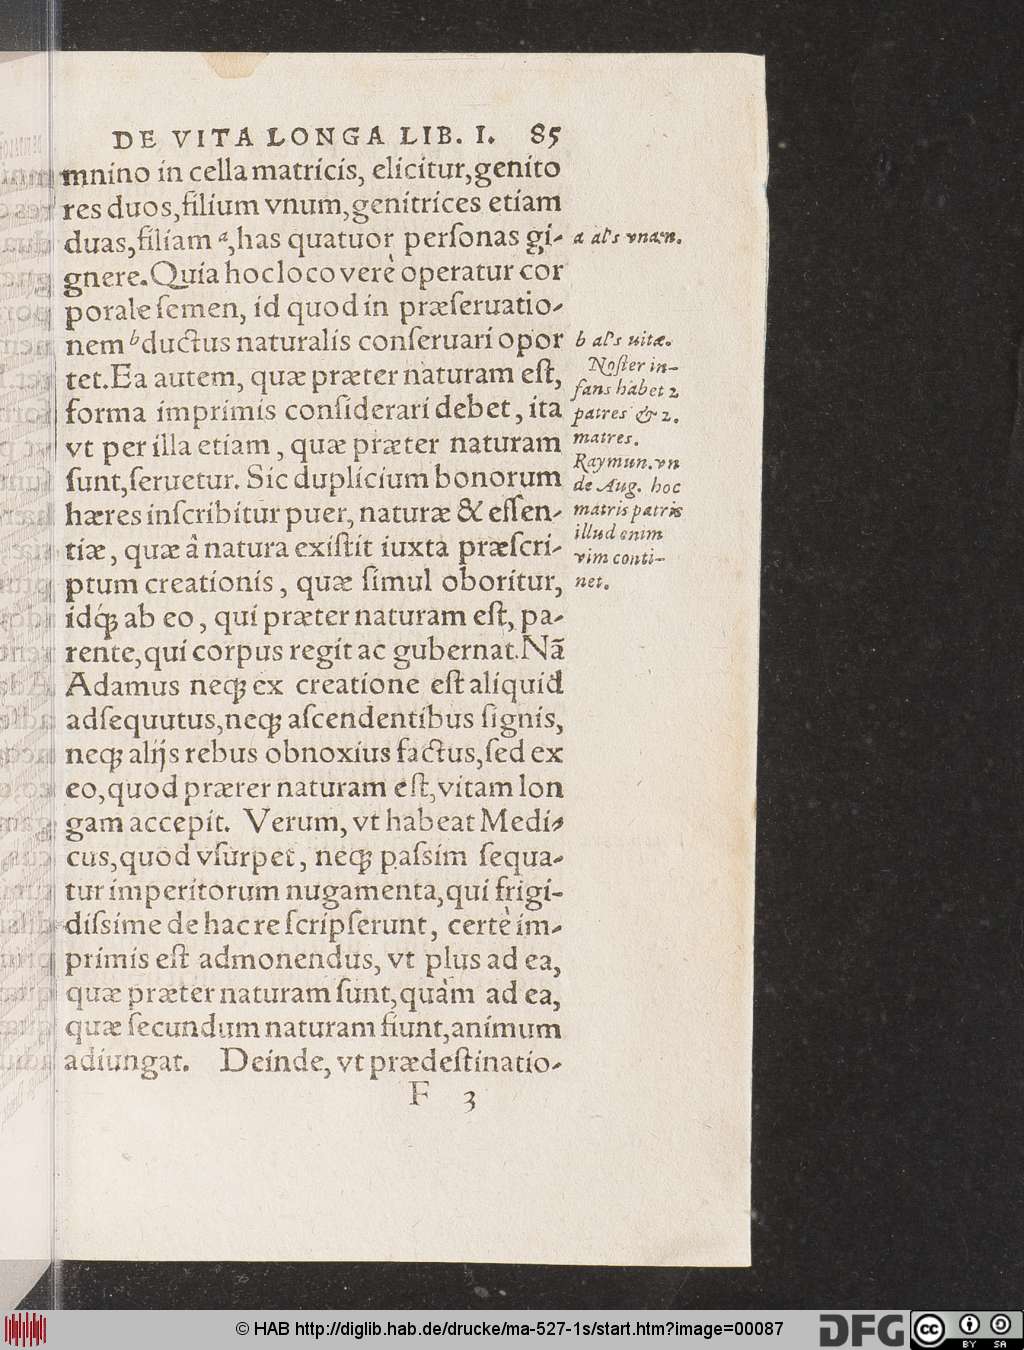 DE VITA LONGA LIB. I. 85
mnino in cella matricis, elicitur, genito
res duos, filium vnum, genitrices etiam
duas, filiam ᵃ, has quatuor perſonas gi-
gnere. Quia hoc loco verè operatur cor
porale ſemen, id quod in præſeruatio-
nem ᵇ ductus naturalis conſeruari opor
tet. Ea autem, quæ præter naturam eſt,
forma imprimis conſiderari debet, ita
vt per illa etiam, quæ præter naturam
ſunt, ſeruetur. Sic duplicium bonorum
hæres inſcribitur puer, naturæ & eſſen-
tiæ, quæ â natura exiſtit iuxta præſcri-
ptum creationis, quæ ſimul oboritur,
idq́; ab eo, qui præter naturam eſt, pa-
rente, qui corpus regit ac gubernat. Nã
Adamus neq; ex creatione eſt aliquid
adſequutus, neq; aſcendentibus ſignis,
neq; alijs rebus obnoxius factus, ſed ex
eo, quod prærer naturam eſt, vitam lon
gam accepit. Verum, vt habeat Medi-
cus, quod vſurpet, neq; paſsim ſequa-
tur imperitorum nugamenta, qui frigi-
diſsime de hac re ſcripſerunt, certè im-
primis eſt admonendus, vt plus ad ea,
quæ præter naturam ſunt, quàm ad ea,
quæ ſecundum naturam fiunt, animum
adiungat. Deinde, vt prædeſtinatio-
F 3
a al's vnam.
b al's uitæ.
Noſter in-
fans habet 2
patres & 2.
matres.
Raymun. vn
de Aug. hoc
matris patris
illud enim
vim conti-
net.
© HAB http://diglib.hab.de/drucke/ma-527-1s/start.htm?image=00087
DFG
cc
BY SA